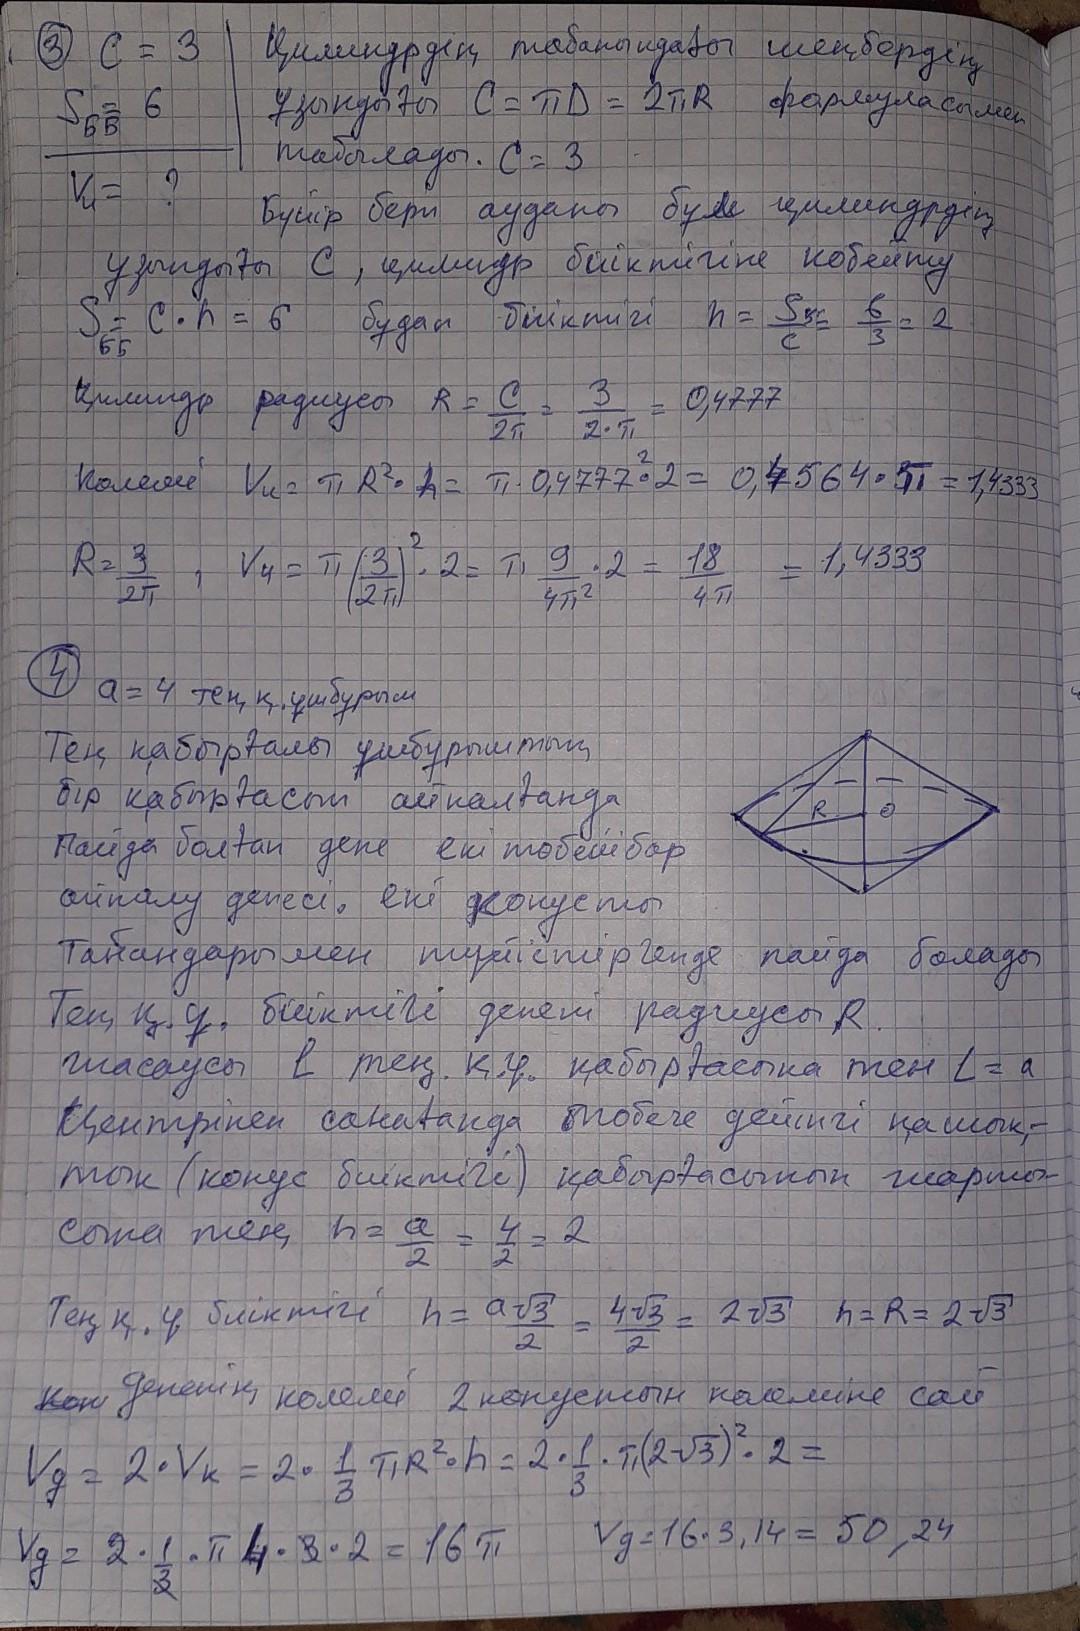 ③ C = 3 Цилиндрдің табанындағы шеңбердің
Sбб = 6 ұзындығы C = πD = 2πR формуласымен
табылады. C = 3
Vц = ? Бүйір бері ауданы бұл цилиндрдің
ұзындығы C, цилиндр биіктігіне көбейту
Sбб = C · h = 6 бұдан биіктігі h = Sбб/C = 6/3 = 2
Цилиндр радиусы R = C/2π = 3/2·π = 0,4777
Көлемі Vц = πR²·h = π·0,4777²·2 = 0,4564·π = 1,4333
R = 3/2π, Vц = π(3/2π)²·2 = π 9/4π²·2 = 18/4π = 1,4333
④ a = 4 тең қ. үшбұрыш
Тең қабырғалы үшбұрыштың
бір қабырғасын айналғанда
Пайда болған дене екі төбесі бар
айналу денесі. екі конусты
Табандарымен түйістіргенде пайда болады
Тең қ.ү. биіктігі дененің радиусы R.
жасаушы L тең. қ.ү. қабырғасына тең L = a
Центрінен санағанда төбеге дейінгі қашық-
тық (конус биіктігі) қабырғасының жарты-
сына тең h = a/2 = 4/2 = 2
Тең қ. ү биіктігі h = a√3/2 = 4√3/2 = 2√3 h = R = 2√3
Дененің көлемі 2 конустың көлеміне сай
Vg = 2·Vк = 2·1/3 πR²·h = 2·1/3·π(2√3)²·2 =
Vg = 2·1/3·π 4·3·2 = 16π Vg = 16·3,14 = 50,24
R O